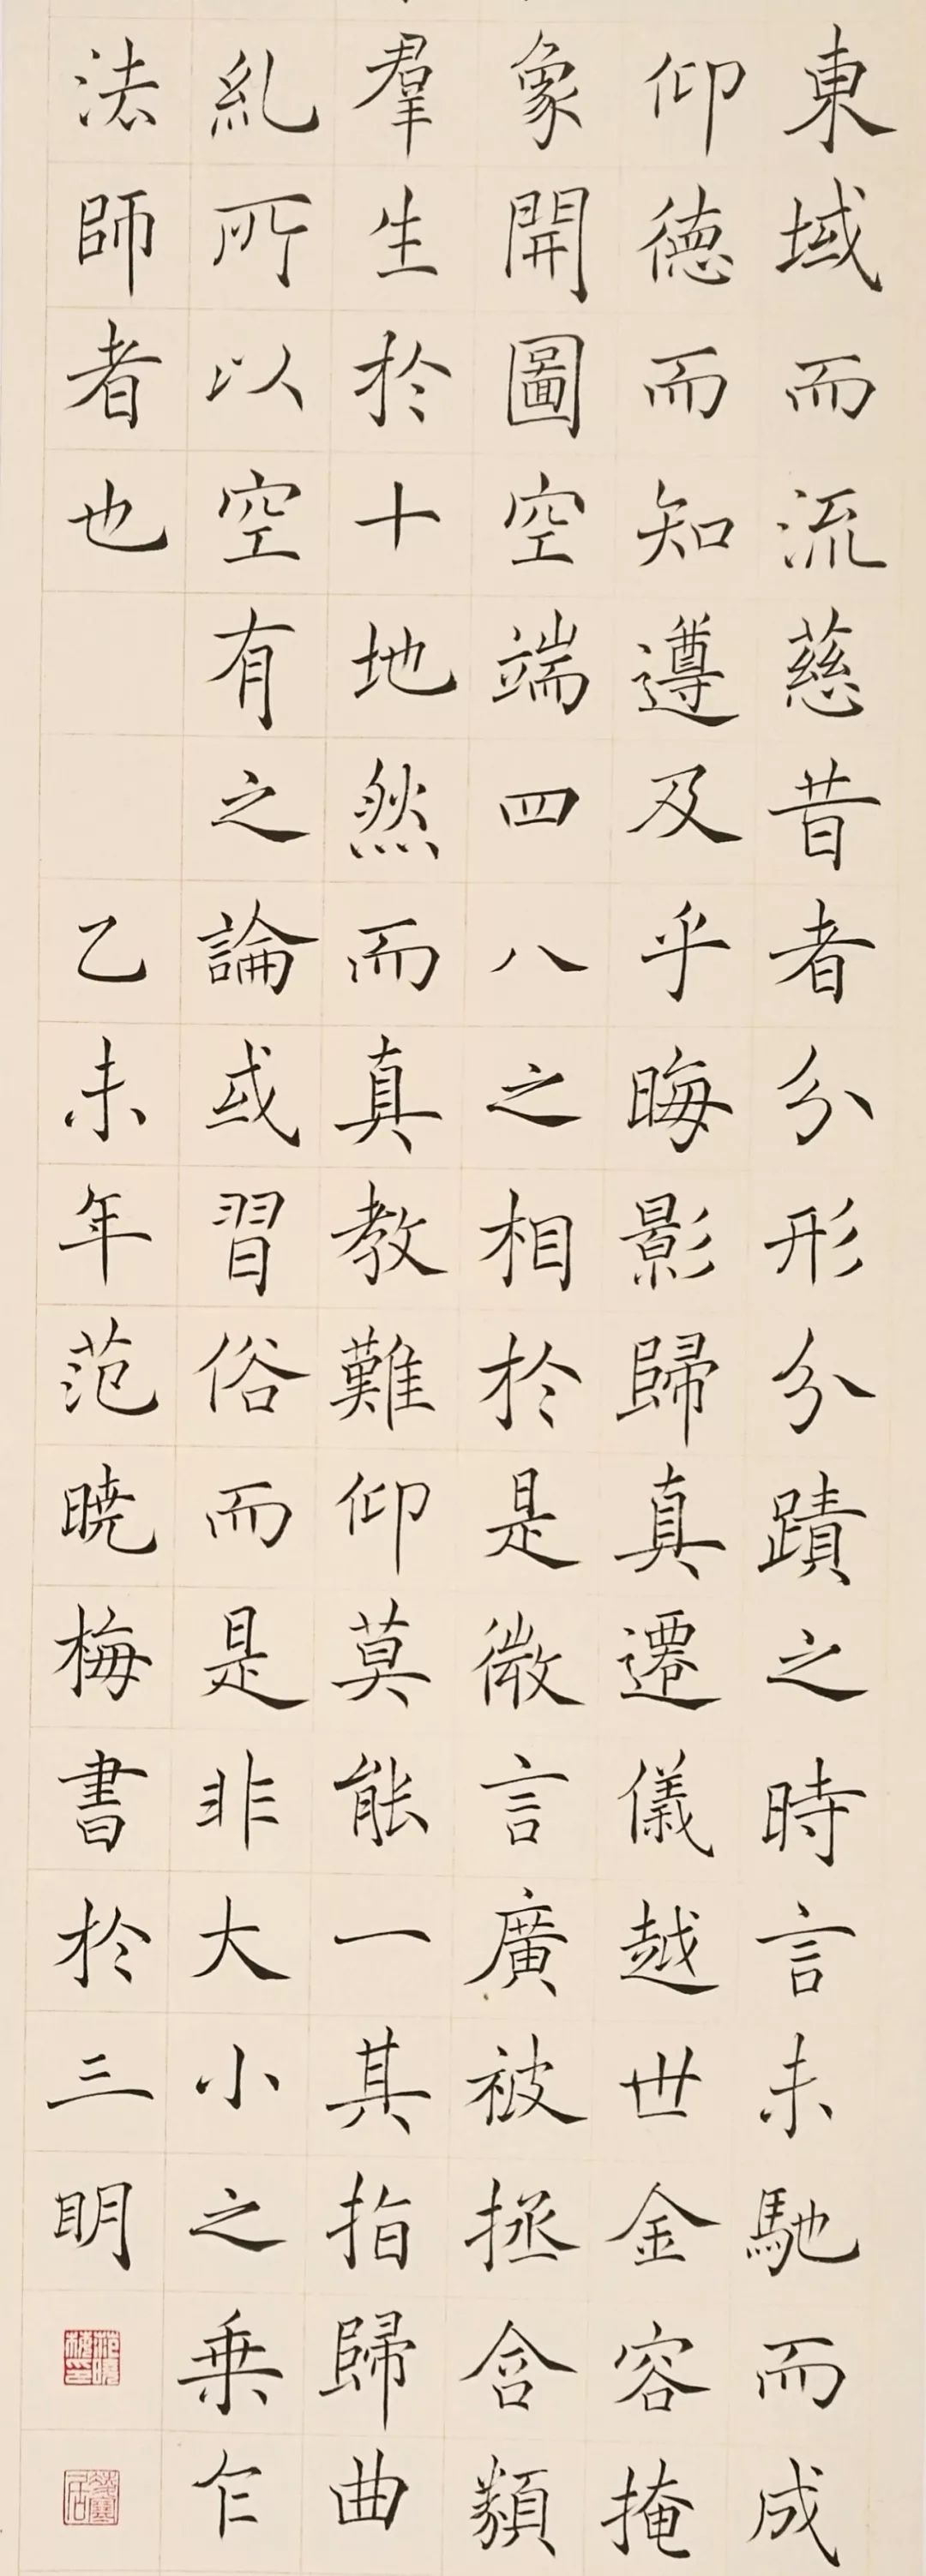 東域而流慈昔者分形分蹟之時言未馳而成
仰德而知遵及乎晦影歸真遷儀越世金容掩
象開圖空端四八之相於是微言廣被拯含類
羣生於十地然而真教難仰莫能一其指歸曲
乱所以空有之論或習俗而是非大小之乗乍
法師者也
乙未年范曉梅書於三明